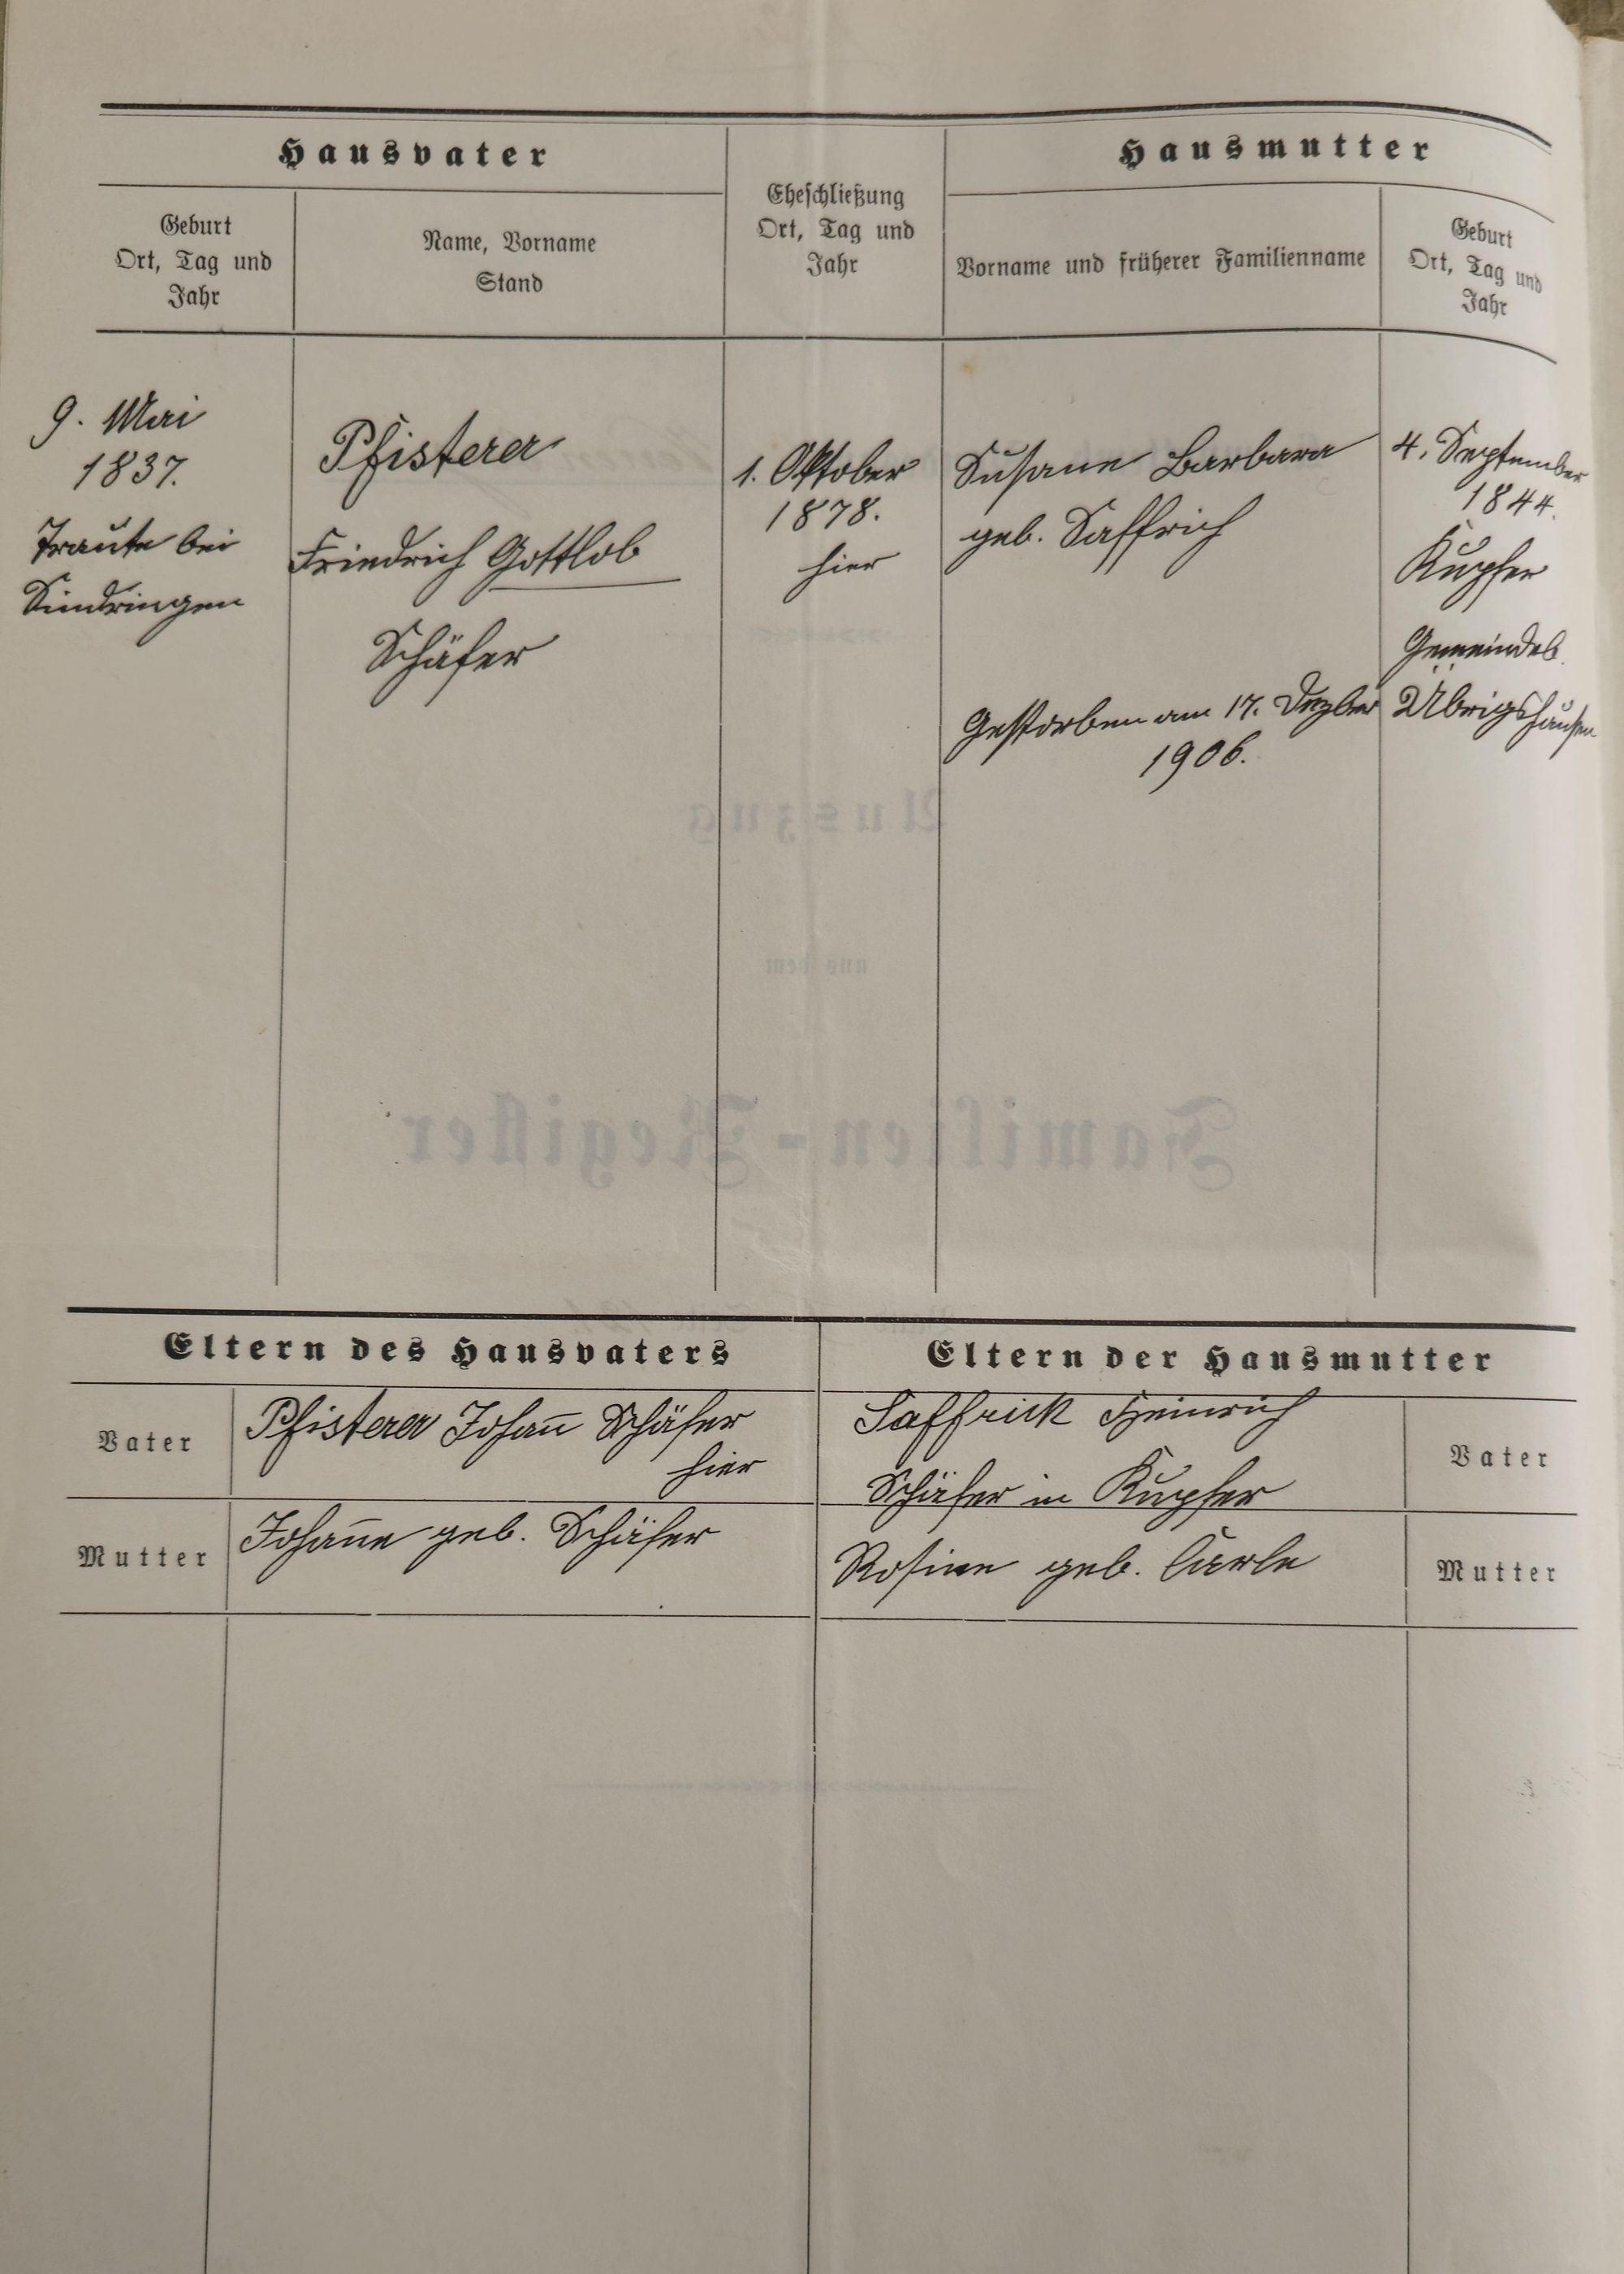 Hausvater
Geburt
Ort, Tag und
Jahr
Name, Vorname
Stand
Eheschließung
Ort, Tag und
Jahr
Hausmutter
Vorname und früherer Familienname
Geburt
Ort, Tag und
Jahr
9. Mai
1837.
bei
Sindringen
Pfisterer
Friedrich Gottlob
Schäfer
1. Oktober
1878.
hier
Susane Barbara
geb. Saffrich
Gestorben am 17. Dezber
1906.
4. September
1844.
Kupfer
Gemeindeb.
Übrigshausen
Auszug
aus dem
Familien-Register
Eltern des Hausvaters
Vater
Pfisterer Johann̅ Schäfer
hier
Mutter
Johan̅e geb. Schäfer
Eltern der Hausmutter
Saffrich Heinrich
Schäfer in Kupfer
Vater
Rosine geb.
Mutter